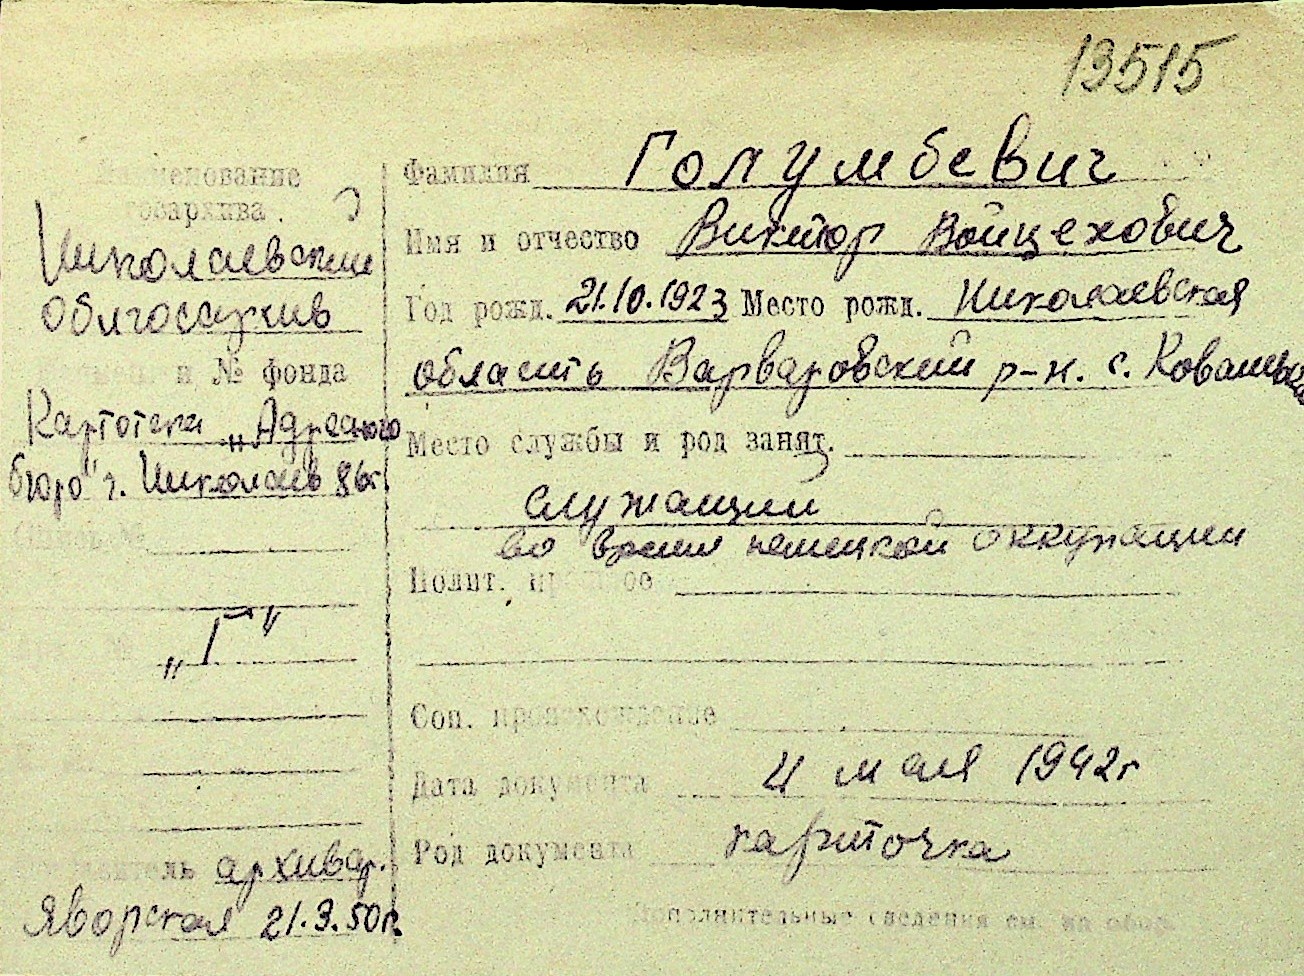 13515
Наименование
госархива.
Николаевский
Облгосархив
и № фонда
Картотека „Адресного
бюро" г. Николаев
Опись №
„Г"
архивар.
Яворская 21.3.50г.
Фамилия Голумбевич
Имя и отчество Виктор Войцехович
Год рожд. 21.10.1923 Место рожд. Николаевская
область Варваровский р-н. с.
Место службы и род занят.
служащий
во время немецкой оккупации
Полит. прошлое
Соц. происхождение
Дата документа 4 мая 1942г
Род документа карточка
Дополнительные сведения см. на обор.